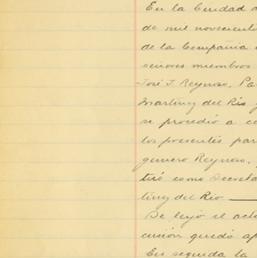 En la Ciudad d
de mil novecient
de la Compañía
señores miembros
José J. Reynoso, Pa
Martínez del Río y
se procedió a c
los presentes par
geniero Reynoso,
tuó como Secreta
tínez del Río
Se leyó el acta
cusión quedó ap
En seguida la